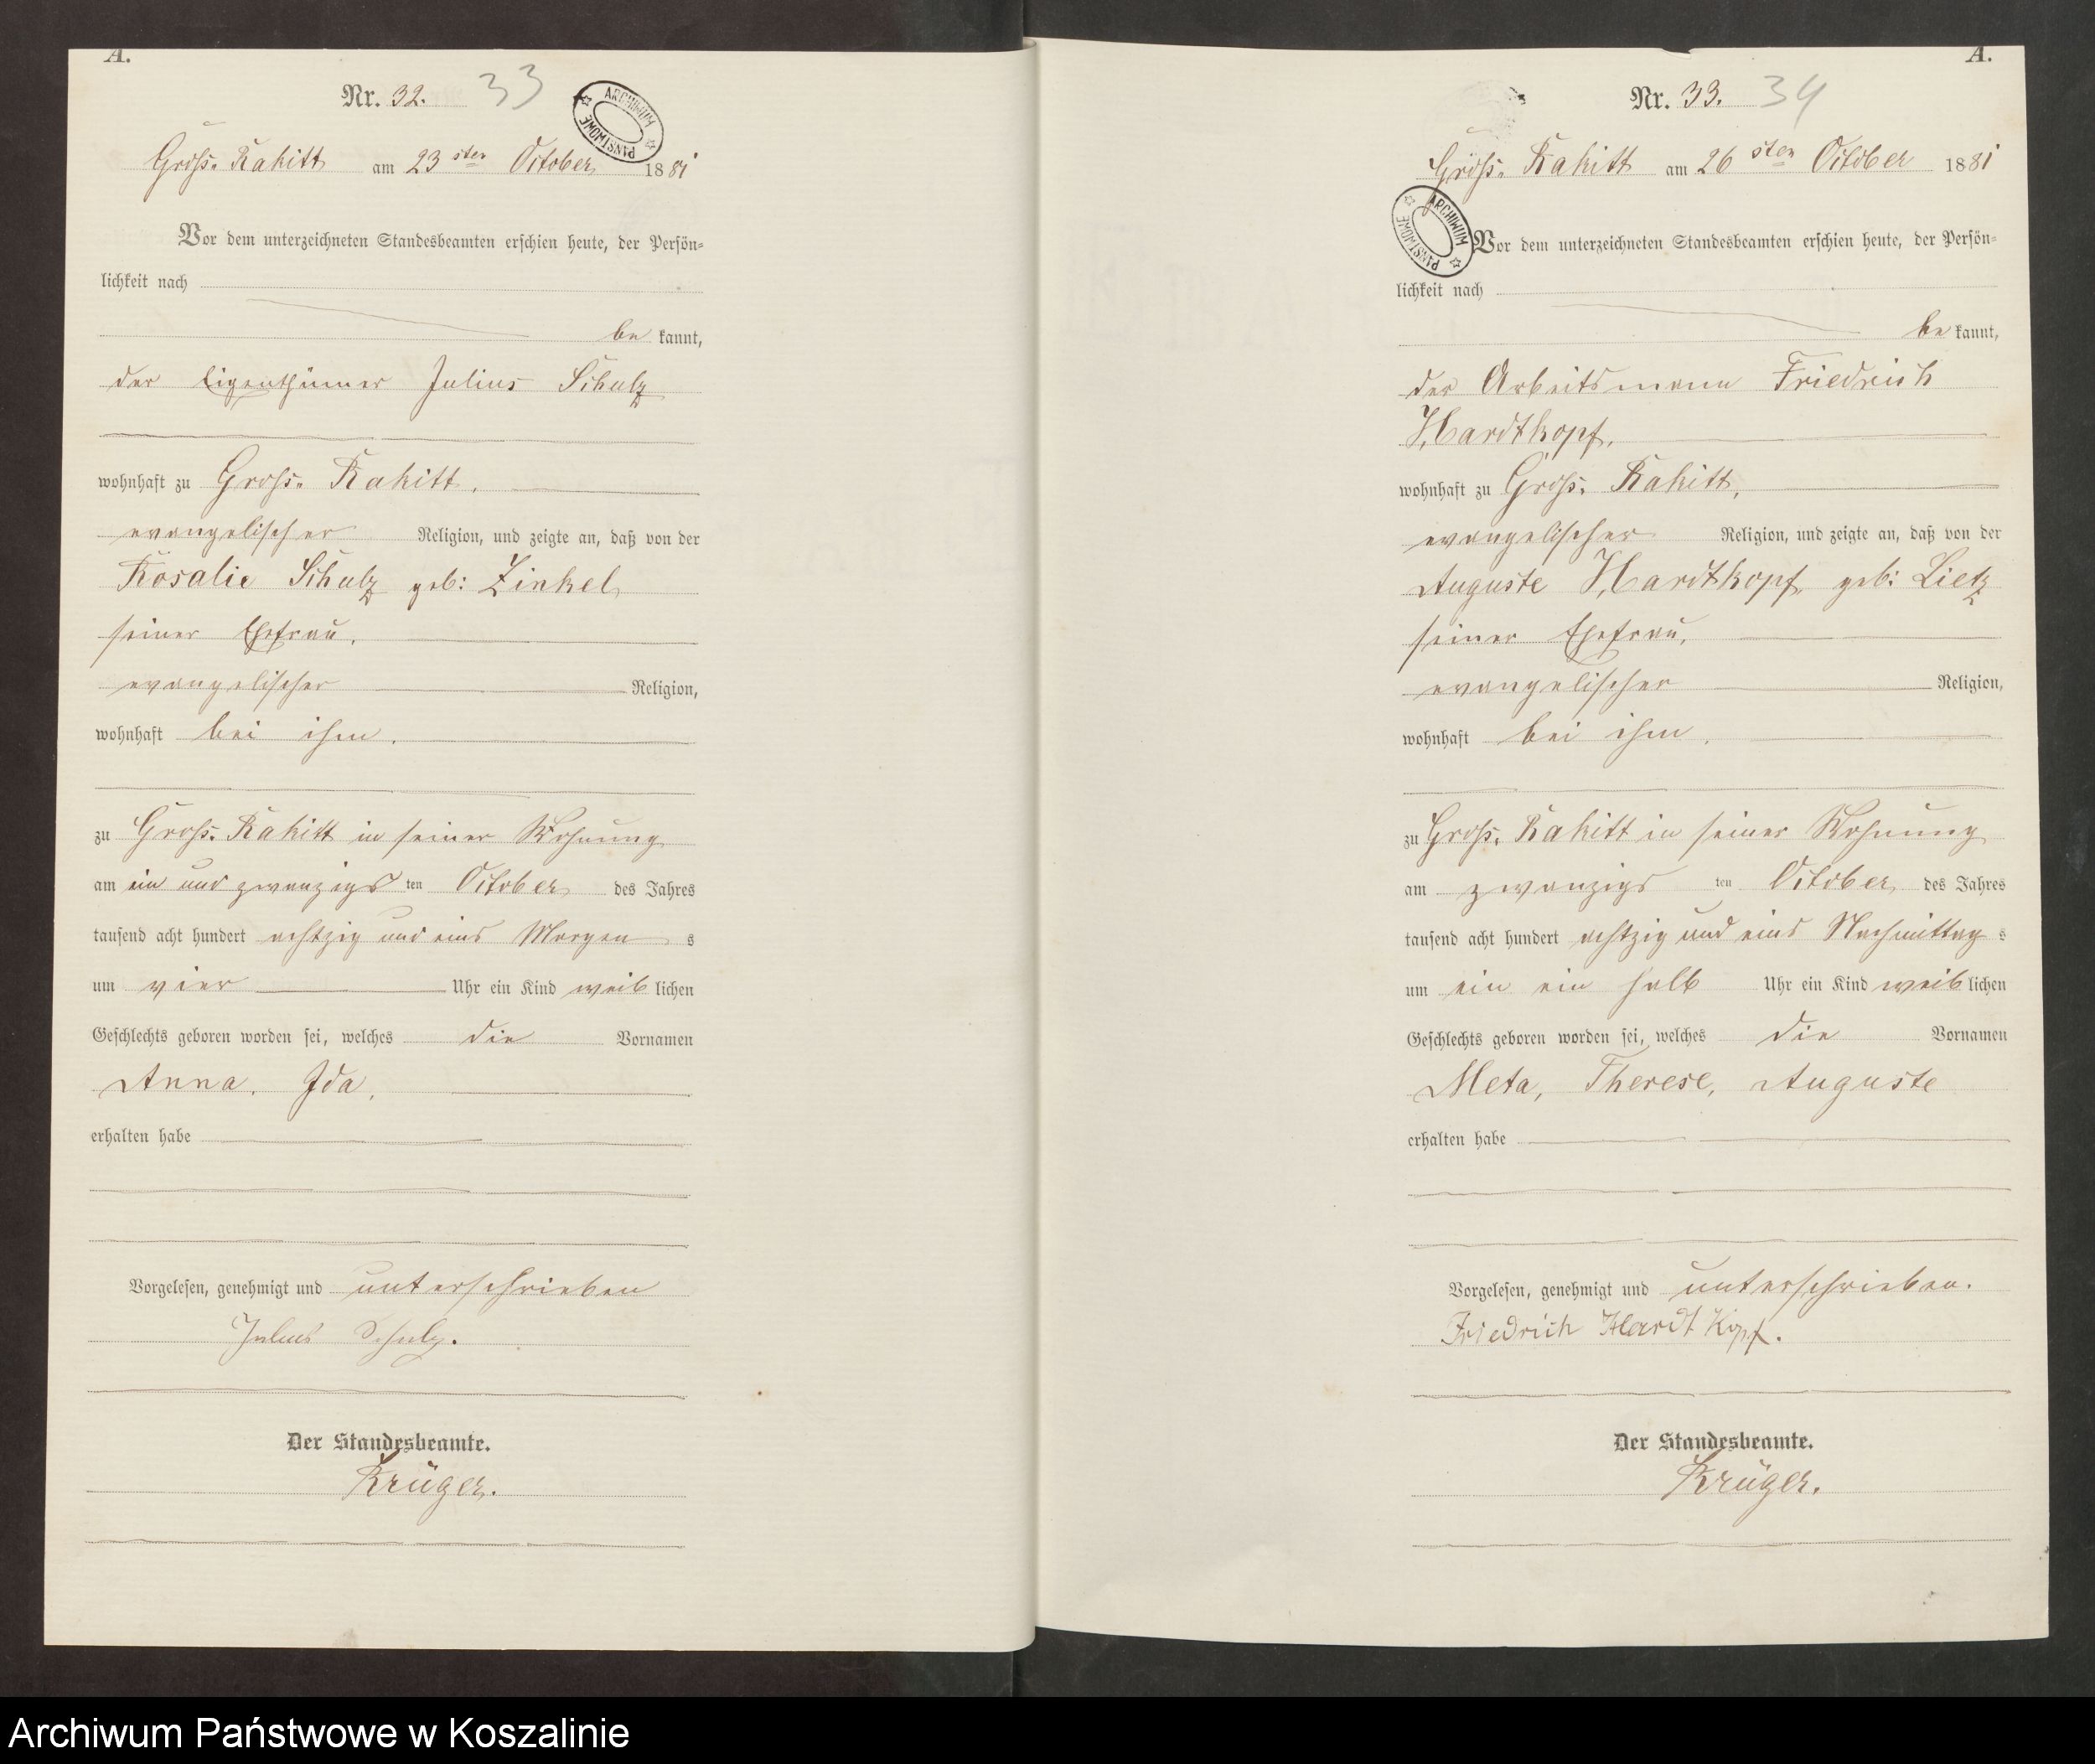 A.
Nr. 32. 33
ARCHIWUM PAŃSTWOWE
Groß-Rakitt am 23 sten October 1881
Vor dem unterzeichneten Standesbeamten erschien heute, der Persön=
lichkeit nach
be kannt,
der Eigenthümer Julius Schulz
wohnhaft zu Groß-Rakitt,
evangelischer Religion, und zeigte an, daß von der
Rosalie Schulz geb: Zinkel,
seiner Ehefrau,
evangelischer Religion,
wohnhaft bei ihm,
zu Groß-Rakitt in seiner Wohnung
am ein und zwanzigs ten October des Jahres
tausend acht hundert achtzig und eins Morgen s
um vier Uhr ein Kind weib lichen
Geschlechts geboren worden sei, welches die Vornamen
Anna, Ida,
erhalten habe
Vorgelesen, genehmigt und unterschrieben
Julius Schulz.
Der Standesbeamte.
Krüger.
A.
Nr. 33. 34
Groß-Rakitt am 26 sten October 1881
ARCHIWUM PAŃSTWOWE
Vor dem unterzeichneten Standesbeamten erschien heute, der Persön=
lichkeit nach
be kannt,
der Arbeitsmann Friedrich
Hardtkopf,
wohnhaft zu Groß-Rakitt,
evangelischer Religion, und zeigte an, daß von der
Auguste Hardtkopf, geb: Lietz
seiner Ehefrau,
evangelischer Religion,
wohnhaft bei ihm,
zu Groß-Rakitt in seiner Wohnung
am zwanzigs ten October des Jahres
tausend acht hundert achtzig und eins Nachmittag s
um ein ein halb Uhr ein Kind weib lichen
Geschlechts geboren worden sei, welches die Vornamen
Meta, Therese, Auguste
erhalten habe
Vorgelesen, genehmigt und unterschrieben.
Friedrich Hardt Kopf.
Der Standesbeamte.
Krüger.
Archiwum Państwowe w Koszalinie